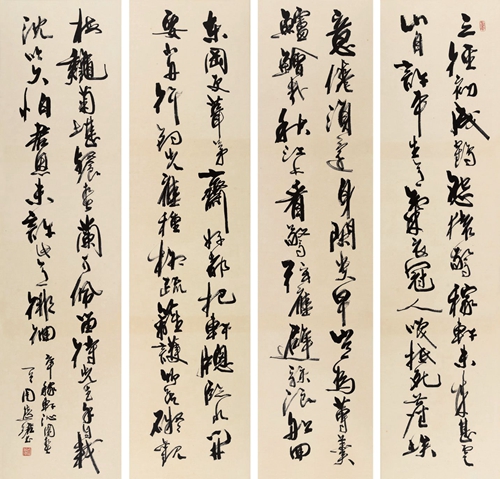 三徑初成鶴怨猿驚稼軒未來甚雲
山自許平生意氣衣冠人笑抵死塵埃
意倦須還身閑貴早豈為蓴羹
鱸鱠哉秋江上看驚弦雁避駭浪船回
東岡更葺茅齋好都把軒窗臨水開
要小舟行釣先應種柳疏籬護竹莫礙觀
梅秋菊堪餐春蘭可佩留待先生手自栽
沈吟久怕君恩未許此意徘徊
辛稼軒沁園春
周慧珺